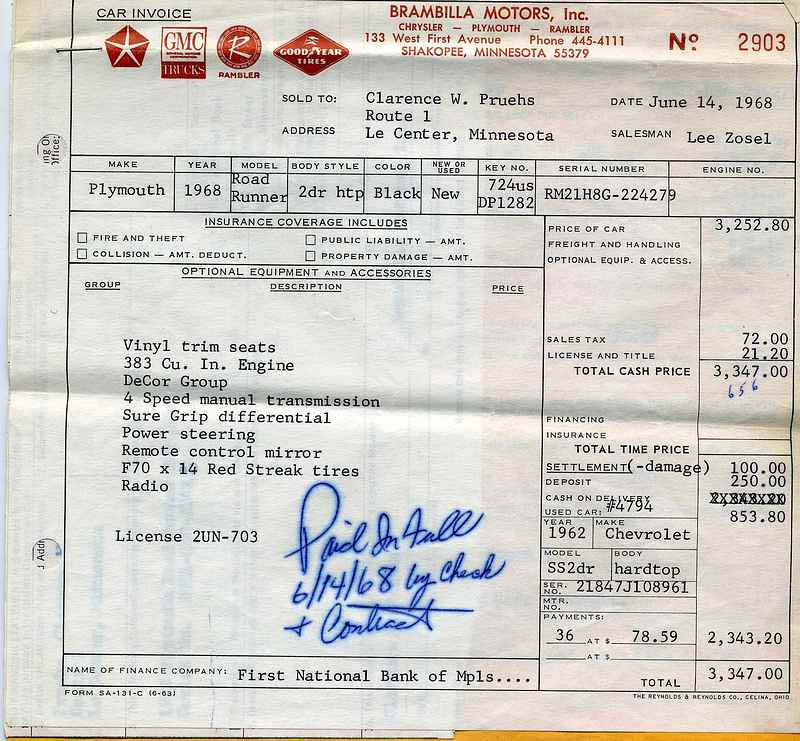 CAR INVOICE
BRAMBILLA MOTORS, Inc.
CHRYSLER — PLYMOUTH — RAMBLER
133 West First Avenue Phone 445-4111
SHAKOPEE, MINNESOTA 55379
No. 2903
GMC
TRUCKS
R
RAMBLER
GOODYEAR
TIRES
SOLD TO: Clarence W. Pruehs DATE June 14, 1968
Route 1
ADDRESS Le Center, Minnesota SALESMAN Lee Zosel
MAKE YEAR MODEL BODY STYLE COLOR NEW OR USED KEY NO. SERIAL NUMBER ENGINE NO.
Plymouth 1968 Road Runner 2dr htp Black New 724us DP1282 RM21H8G-224279
INSURANCE COVERAGE INCLUDES
FIRE AND THEFT PUBLIC LIABILITY — AMT.
COLLISION — AMT. DEDUCT. PROPERTY DAMAGE — AMT.
OPTIONAL EQUIPMENT AND ACCESSORIES
GROUP DESCRIPTION PRICE
Vinyl trim seats
383 Cu. In. Engine
DeCor Group
4 Speed manual transmission
Sure Grip differential
Power steering
Remote control mirror
F70 x 14 Red Streak tires
Radio
License 2UN-703
Paid In Full
6/14/68 by Check
+ Contract
PRICE OF CAR 3,252.80
FREIGHT AND HANDLING
OPTIONAL EQUIP. & ACCESS.
SALES TAX 72.00
LICENSE AND TITLE 21.20
TOTAL CASH PRICE 3,347.00
656
FINANCING
INSURANCE
TOTAL TIME PRICE
SETTLEMENT (-damage) 100.00
DEPOSIT 250.00
CASH ON DELIVERY
USED CAR: #4794 853.80
YEAR MAKE
1962 Chevrolet
MODEL BODY
SS2dr hardtop
SER. NO. 21847J108961
MTR. NO.
PAYMENTS:
36 AT $ 78.59 2,343.20
AT $
TOTAL 3,347.00
NAME OF FINANCE COMPANY: First National Bank of Mpls....
FORM SA-131-C (6-63)
THE REYNOLDS & REYNOLDS CO., CELINA, OHIO